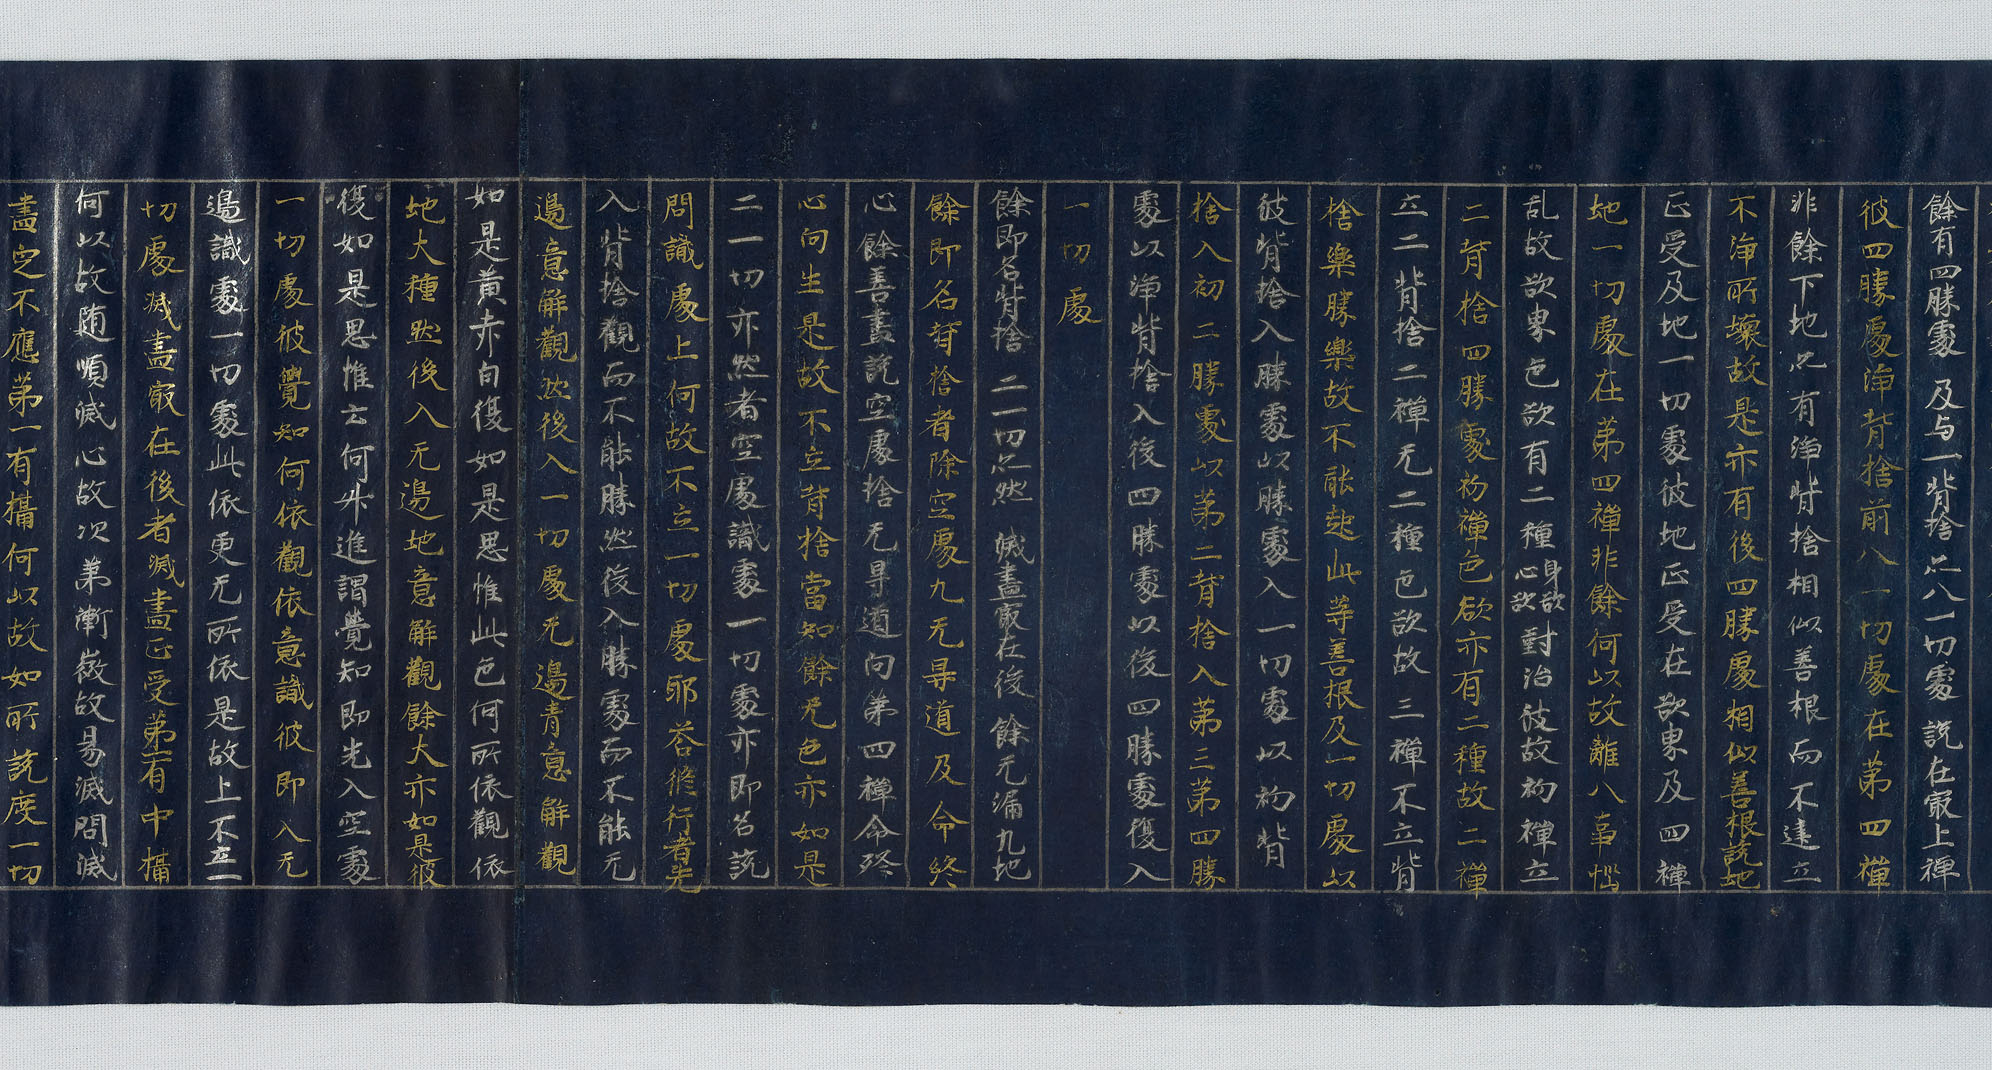 餘有四勝處 及与一背捨 亦八一切處 說在㝡上禪
彼四勝處淨背捨前八一切處在第四禪
非餘下地亦有淨背捨相似善根而不遠立
不淨所壞故是亦有後四勝處相似善根說地
正受及地一切處彼地正受在欲界及四禪
地一切處在第四禪非餘何以故離八事惱
乱故欲界色欲有二種身欲心欲對治彼故初禪立
二背捨四勝處初禪色欲亦有二種故二禪
立二背捨二禪无二種色欲故三禪不立背
捨樂勝樂故不能起此等善根及一切處以
彼背捨入勝處以勝處入一切處以初背
捨入初二勝處以第二背捨入第三第四勝
處以淨背捨入後四勝處以後四勝處復入
一切處
餘即名背捨 二一切亦然 滅盡㝡在後 餘无漏九地
餘即名背捨者除空處九无㝵道及命終
心餘善盡說空處捨无㝵道向第四禪命終
心向生是故不立背捨當知餘无色亦如是
二一切亦然者空處識處一切處亦即名說
問識處上何故不立一切處耶答脩行者先
入背捨觀而不能勝然後入勝處而不能无
邊意解觀然後入一切處无邊青意解觀
如是黃赤白復如是思惟此色何所依觀依
地大種然後入无邊地意解觀餘大亦如是彼
復如是思惟云何升進謂覺知即先入空處
一切處彼覺知何依觀依意識彼即入无
邊識處一切處此依更无所依是故上不立一
切處滅盡㝡在後者滅盡正受第一有中攝
何以故随順滅心故次第漸微故易滅問滅
盡定不應第一有攝何以故如所說度一切